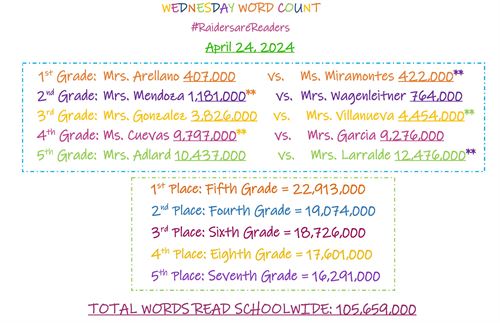 WEDNESDAY WORD COUNT
#RaidersareReaders
April 24, 2024
1st Grade: Mrs. Arellano 407,000 vs. Ms. Miramontes 422,000**
2nd Grade: Mrs. Mendoza 1,181,000** vs. Mrs. Wagenleitner 764,000
3rd Grade: Mrs. Gonzalez 3,826,000 vs. Mrs. Villanueva 4,454,000**
4th Grade: Ms. Cuevas 9,797,000** vs. Mrs. Garcia 9,276,000
5th Grade: Mrs. Adlard 10,437,000 vs. Mrs. Larralde 12,476,000**
1st Place: Fifth Grade = 22,913,000
2nd Place: Fourth Grade = 19,074,000
3rd Place: Sixth Grade = 18,726,000
4th Place: Eighth Grade = 17,601,000
5th Place: Seventh Grade = 16,291,000
TOTAL WORDS READ SCHOOLWIDE: 105,659,000